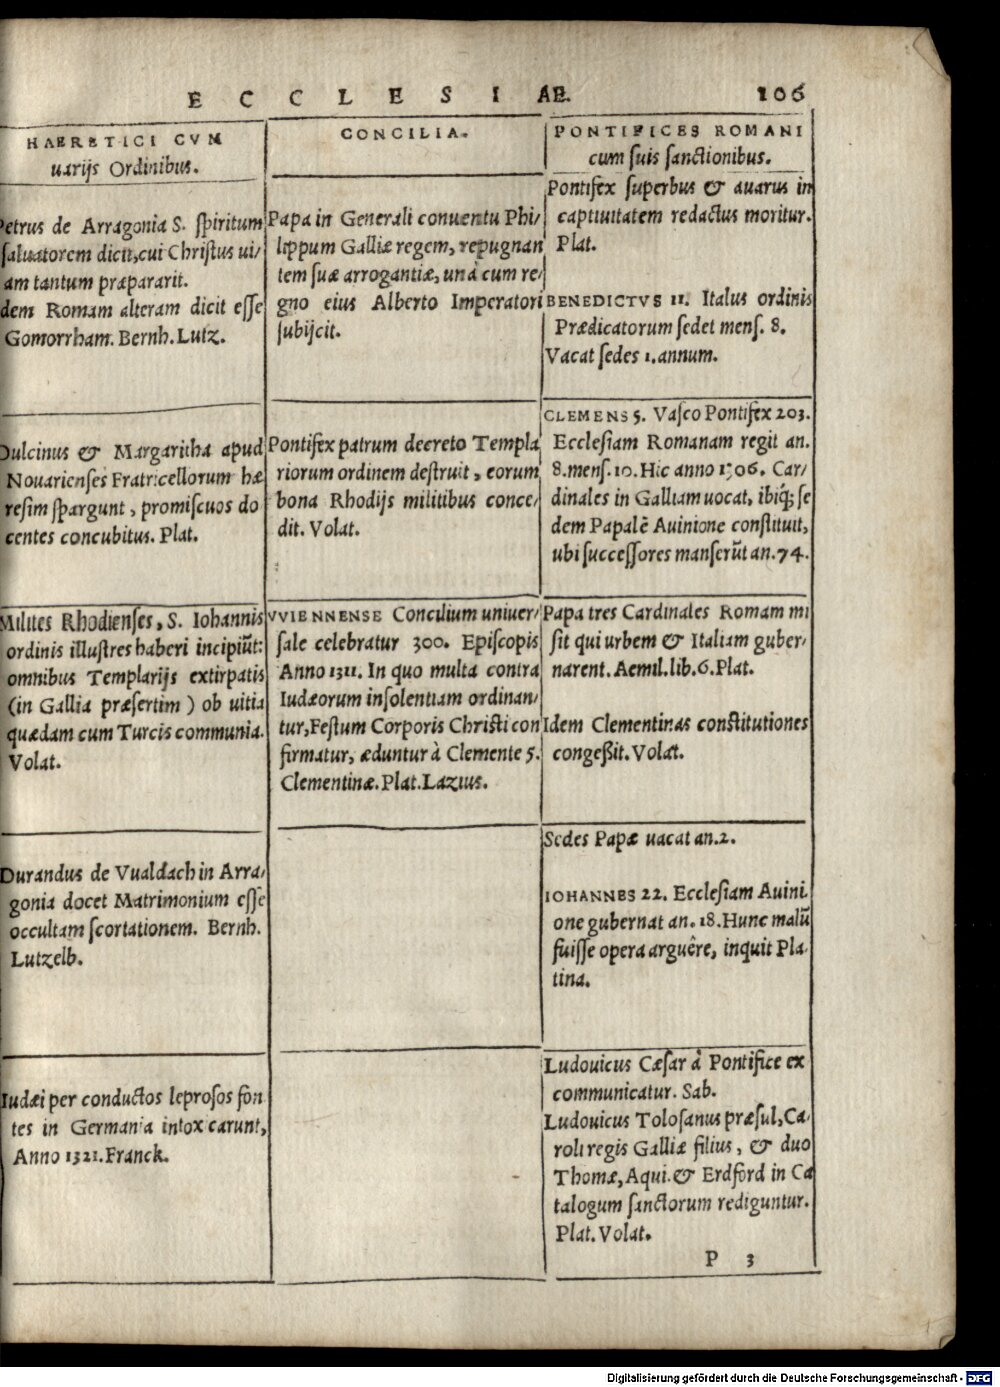 ECCLESIAE. 106
HAERETICI CVM
uarijs Ordinibus.
Petrus de Arragonia S. spiritum
saluatorem dicit, cui Christus ui/
am tantum præpararit.
dem Romam alteram dicit esse
Gomorrham. Bernh. Lutz.
Dulcinus & Margaritha apud
Nouarienses Fratricellorum hæ
resim spargunt, promiscuos do
centes concubitus. Plat.
Milites Rhodienses, S. Iohannis
ordinis illustres haberi incipiūt:
omnibus Templarijs extirpatis
(in Gallia præsertim) ob uitia
quædam cum Turcis communia.
Volat.
Durandus de Vualdach in Arra/
gonia docet Matrimonium esse
occultam scortationem. Bernh.
Lutzelb.
Iudæi per conductos leprosos fon
tes in Germania intoxicarunt,
Anno 1321. Franck.
CONCILIA.
Papa in Generali conuentu Phi/
lippum Galliæ regem, repugnan
tem suæ arrogantiæ, unà cum re/
gno eius Alberto Imperatori
subijcit.
Pontifex patrum decreto Templa
riorum ordinem destruit, eorum
bona Rhodijs militibus conce/
dit. Volat.
VVIENNENSE Concilium uniuer/
sale celebratur 300. Episcopis
Anno 1311. In quo multa contra
Iudæorum insolentiam ordinan/
tur, Festum Corporis Christi con
firmatur, æduntur à Clemente 5.
Clementinæ. Plat. Lazius.
PONTIFICES ROMANI
cum suis sanctionibus.
Pontifex superbus & auarus in
captiuitatem redactus moritur.
Plat.
BENEDICTVS 11. Italus ordinis
Prædicatorum sedet mens. 8.
Vacat sedes 1. annum.
CLEMENS 5. Vasco Pontifex 203.
Ecclesiam Romanam regit an.
8. mens. 10. Hic anno 1306. Car/
dinales in Galliam uocat, ibiq́; se
dem Papalē Auinione constituit,
ubi successores manserūt an. 74.
Papa tres Cardinales Romam mi
sit qui urbem & Italiam guber/
narent. Aemil. lib. 6. Plat.
Idem Clementinas constitutiones
congeßit. Volat.
Sedes Papæ uacat an. 2.
IOHANNES 22. Ecclesiam Auini.
one gubernat an. 18. Hunc malū
fuisse opera arguêre, inquit Pla/
tina.
Ludouicus Cæsar à Pontifice ex
communicatur. Sab.
Ludouicus Tolosanus præsul, Ca/
roli regis Galliæ filius, & duo
Thomæ, Aqui. & Erdford in Ca
talogum sanctorum rediguntur.
Plat. Volat.
P 3
Digitalisierung gefördert durch die Deutsche Forschungsgemeinschaft - DFG